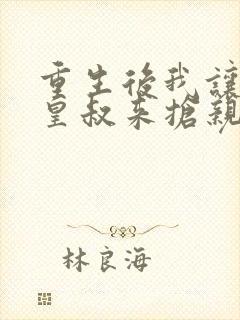 重生後我讓
皇叔來搶親
林良海